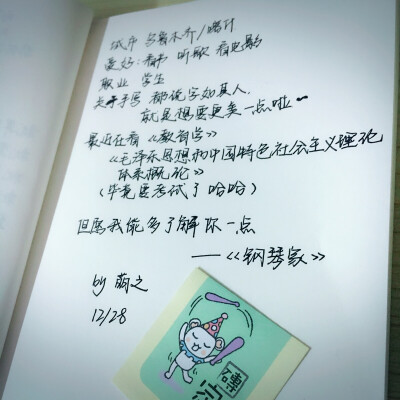 城市 乌鲁木齐/喀什
爱好:看书 听歌 看电影
职业 学生
关于手写 都说字如其人.
就是想要更美一点啦~
最近在看《教育学》
《毛泽东思想和中国特色社会主义理论
体系概论》
(毕竟要考试了哈哈)
但愿我能多了解你一点
——《钢琴家》
by 萌之
12/28